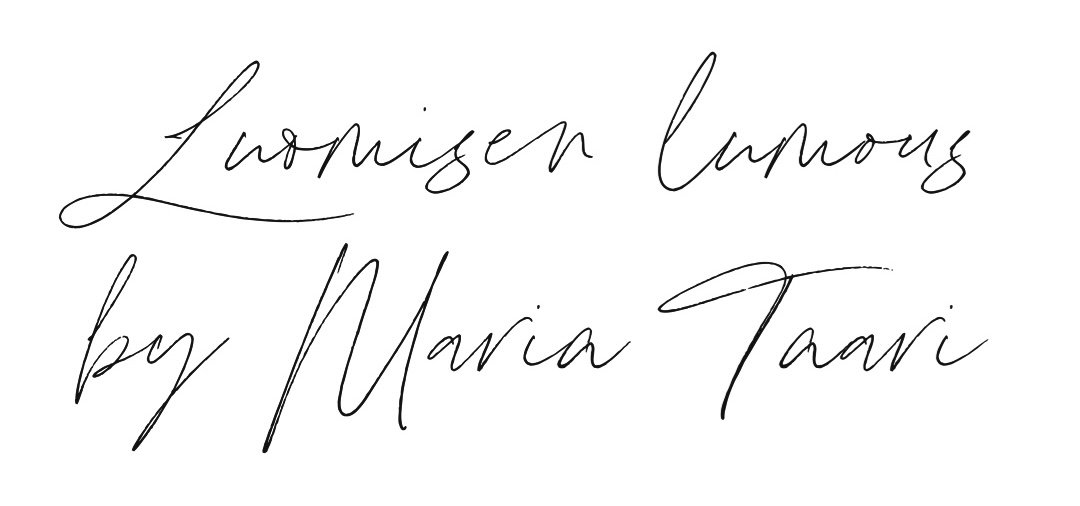 Luomisen lumous
by Maria Taari